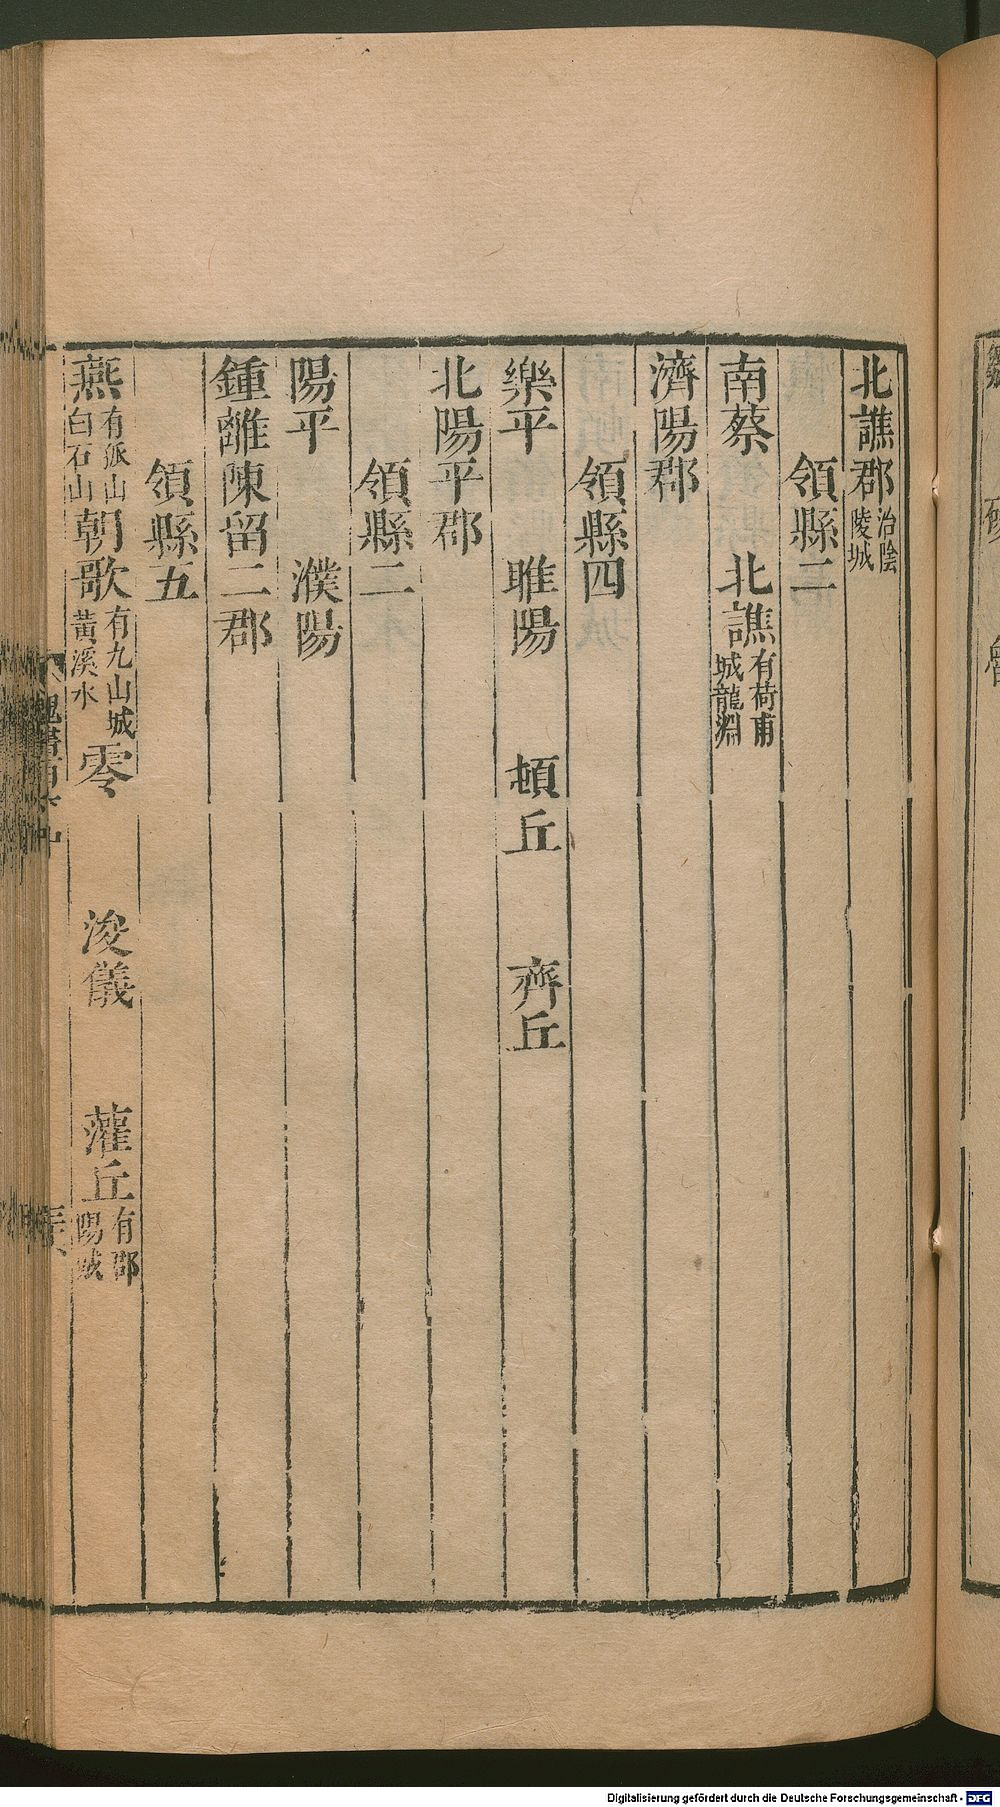 北譙郡治陰陵城
領縣二
南蔡 北譙有荷甫城龍淵
濟陽郡
領縣四
樂平 睢陽 頓丘 齊丘
北陽平郡
領縣二
陽平 濮陽
鍾離陳留二郡
領縣五
燕有狐山白石山朝歌有九山城黃溪水零 浚儀 灌丘有郡陽城
Digitalisierung gefördert durch die Deutsche Forschungsgemeinschaft - DFG